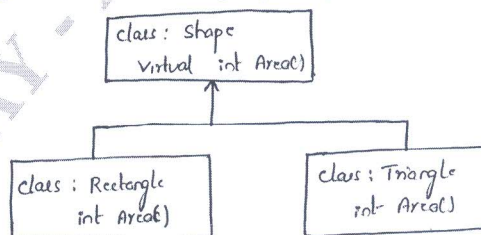 class : Shape
virtual int Area()
class : Rectangle
int Area()
class : Triangle
int Area()